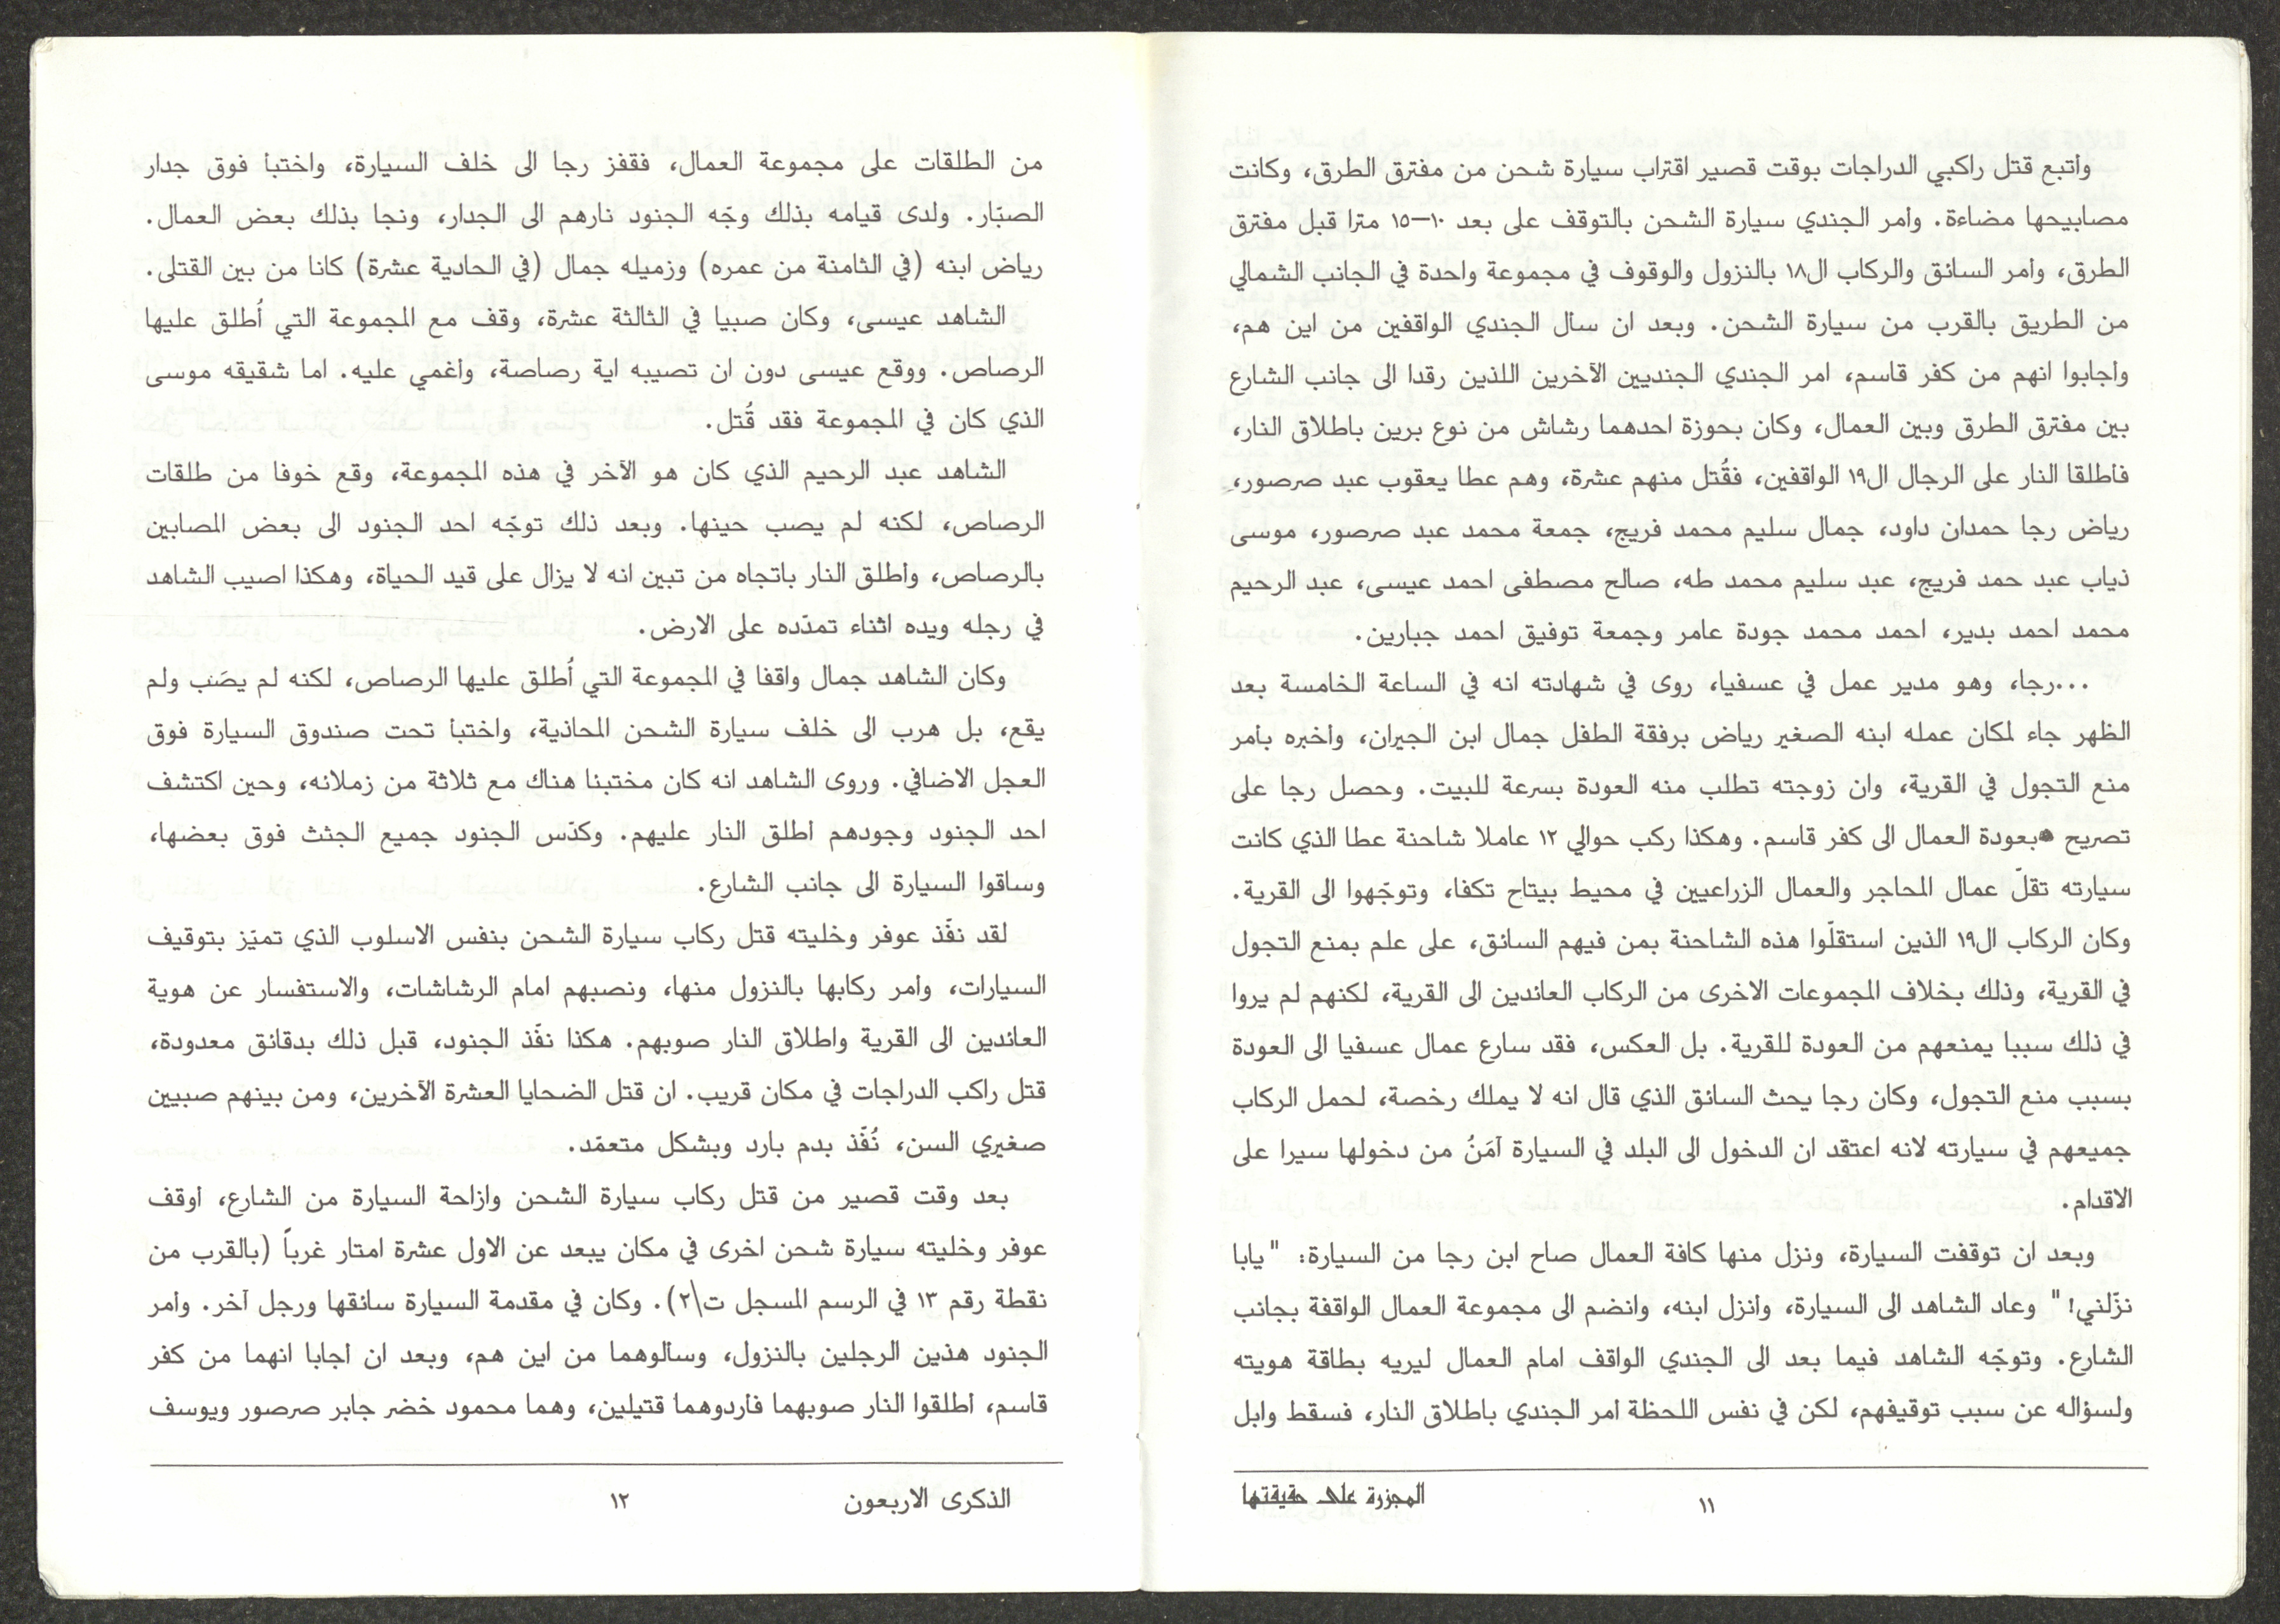 واتبع قتل راكبي الدراجات بوقت قصير اقتراب سيارة شحن من مفترق الطرق، وكانت
مصابيحها مضاءة. وامر الجندي سيارة الشحن بالتوقف على بعد ١٠–١٥ مترا قبل مفترق
الطرق، وامر السائق والركاب ال١٨ بالنزول والوقوف في مجموعة واحدة في الجانب الشمالي
من الطريق بالقرب من سيارة الشحن. وبعد ان سأل الجندي الواقفين من اين هم،
واجابوا انهم من كفر قاسم، امر الجندي الجنديين الآخرين اللذين رقدا الى جانب الشارع
بين مفترق الطرق وبين العمال، وكان بحوزة احدهما رشاش من نوع برين باطلاق النار،
فاطلقا النار على الرجال ال١٩ الواقفين، فقُتل منهم عشرة، وهم عطا يعقوب عبد صرصور،
رياض رجا حمدان داود، جمال سليم محمد فريج، جمعة محمد عبد صرصور، موسى
ذياب عبد حمد فريج، عبد سليم محمد طه، صالح مصطفى احمد عيسى، عبد الرحيم
محمد احمد بدير، احمد محمد جودة عامر وجمعة توفيق احمد جبارين.
...رجا، وهو مدير عمل في عسفيا، روى في شهادته انه في الساعة الخامسة بعد
الظهر جاء لمكان عمله ابنه الصغير رياض برفقة الطفل جمال ابن الجيران، وأخبره بأمر
منع التجول في القرية، وان زوجته تطلب منه العودة بسرعة للبيت. وحصل رجا على
تصريح بعودة العمال الى كفر قاسم. وهكذا ركب حوالي ١٢ عاملا شاحنة عطا الذي كانت
سيارته تقلّ عمال المحاجر والعمال الزراعيين في محيط بيتاح تكفا، وتوجّهوا الى القرية.
وكان الركاب ال١٩ الذين استقلّوا هذه الشاحنة بمن فيهم السائق، على علم بمنع التجول
في القرية، وذلك بخلاف المجموعات الاخرى من الركاب العائدين الى القرية، لكنهم لم يروا
في ذلك سببا يمنعهم من العودة للقرية. بل العكس، فقد سارع عمال عسفيا الى العودة
بسبب منع التجول، وكان رجا يحث السائق الذي قال انه لا يملك رخصة، لحمل الركاب
جميعهم في سيارته لانه اعتقد ان الدخول الى البلد في السيارة آمَنُ من دخولها سيرا على
الاقدام.
وبعد ان توقفت السيارة، ونزل منها كافة العمال صاح ابن رجا من السيارة: "يابا
نزّلني!" وعاد الشاهد الى السيارة، وأنزل ابنه، وانضم الى مجموعة العمال الواقفة بجانب
الشارع. وتوجّه الشاهد فيما بعد الى الجندي الواقف امام العمال ليريه بطاقة هويته
ولسؤاله عن سبب توقيفهم، لكن في نفس اللحظة امر الجندي باطلاق النار، فسقط وابل
المجزرة على حقيقتها
١١
من الطلقات على مجموعة العمال، فقفز رجا الى خلف السيارة، واختبأ فوق جدار
الصبّار. ولدى قيامه بذلك وجّه الجنود نارهم الى الجدار، ونجا بذلك بعض العمال.
رياض ابنه (في الثامنة من عمره) وزميله جمال (في الحادية عشرة) كانا من بين القتلى.
الشاهد عيسى، وكان صبيا في الثالثة عشرة، وقف مع المجموعة التي أُطلق عليها
الرصاص. ووقع عيسى دون ان تصيبه اية رصاصة، وأغمي عليه. اما شقيقه موسى
الذي كان في المجموعة فقد قُتل.
الشاهد عبد الرحيم الذي كان هو الآخر في هذه المجموعة، وقع خوفا من طلقات
الرصاص، لكنه لم يصب حينها. وبعد ذلك توجّه احد الجنود الى بعض المصابين
بالرصاص، وأطلق النار باتجاه من تبين انه لا يزال على قيد الحياة، وهكذا اصيب الشاهد
في رجله ويده اثناء تمدّده على الارض.
وكان الشاهد جمال واقفا في المجموعة التي أُطلق عليها الرصاص، لكنه لم يصَب ولم
يقع، بل هرب الى خلف سيارة الشحن المحاذية، واختبأ تحت صندوق السيارة فوق
العجل الاضافي. وروى الشاهد انه كان مختبئا هناك مع ثلاثة من زملائه، وحين اكتشف
احد الجنود وجودهم أطلق النار عليهم. وكدّس الجنود جميع الجثث فوق بعضها،
وساقوا السيارة الى جانب الشارع.
لقد نفّذ عوفر وخليته قتل ركاب سيارة الشحن بنفس الاسلوب الذي تميّز بتوقيف
السيارات، وأمر ركابها بالنزول منها، ونصبهم امام الرشاشات، والاستفسار عن هوية
العائدين الى القرية واطلاق النار صوبهم. هكذا نفّذ الجنود، قبل ذلك بدقائق معدودة،
قتل راكب الدراجات في مكان قريب. ان قتل الضحايا العشرة الآخرين، ومن بينهم صبيين
صغيري السن، نُفّذ بدم بارد وبشكل متعمّد.
بعد وقت قصير من قتل ركاب سيارة الشحن وازاحة السيارة من الشارع، أوقف
عوفر وخليته سيارة شحن اخرى في مكان يبعد عن الاول عشرة امتار غرباً (بالقرب من
نقطة رقم ١٣ في الرسم المسجل ت\٢). وكان في مقدمة السيارة سائقها ورجل آخر. وأمر
الجنود هذين الرجلين بالنزول، وسألوهما من اين هم، وبعد ان أجابا انهما من كفر
قاسم، أطلقوا النار صوبهما فأردوهما قتيلين، وهما محمود خضر جابر صرصور ويوسف
الذكرى الاربعون
١٢